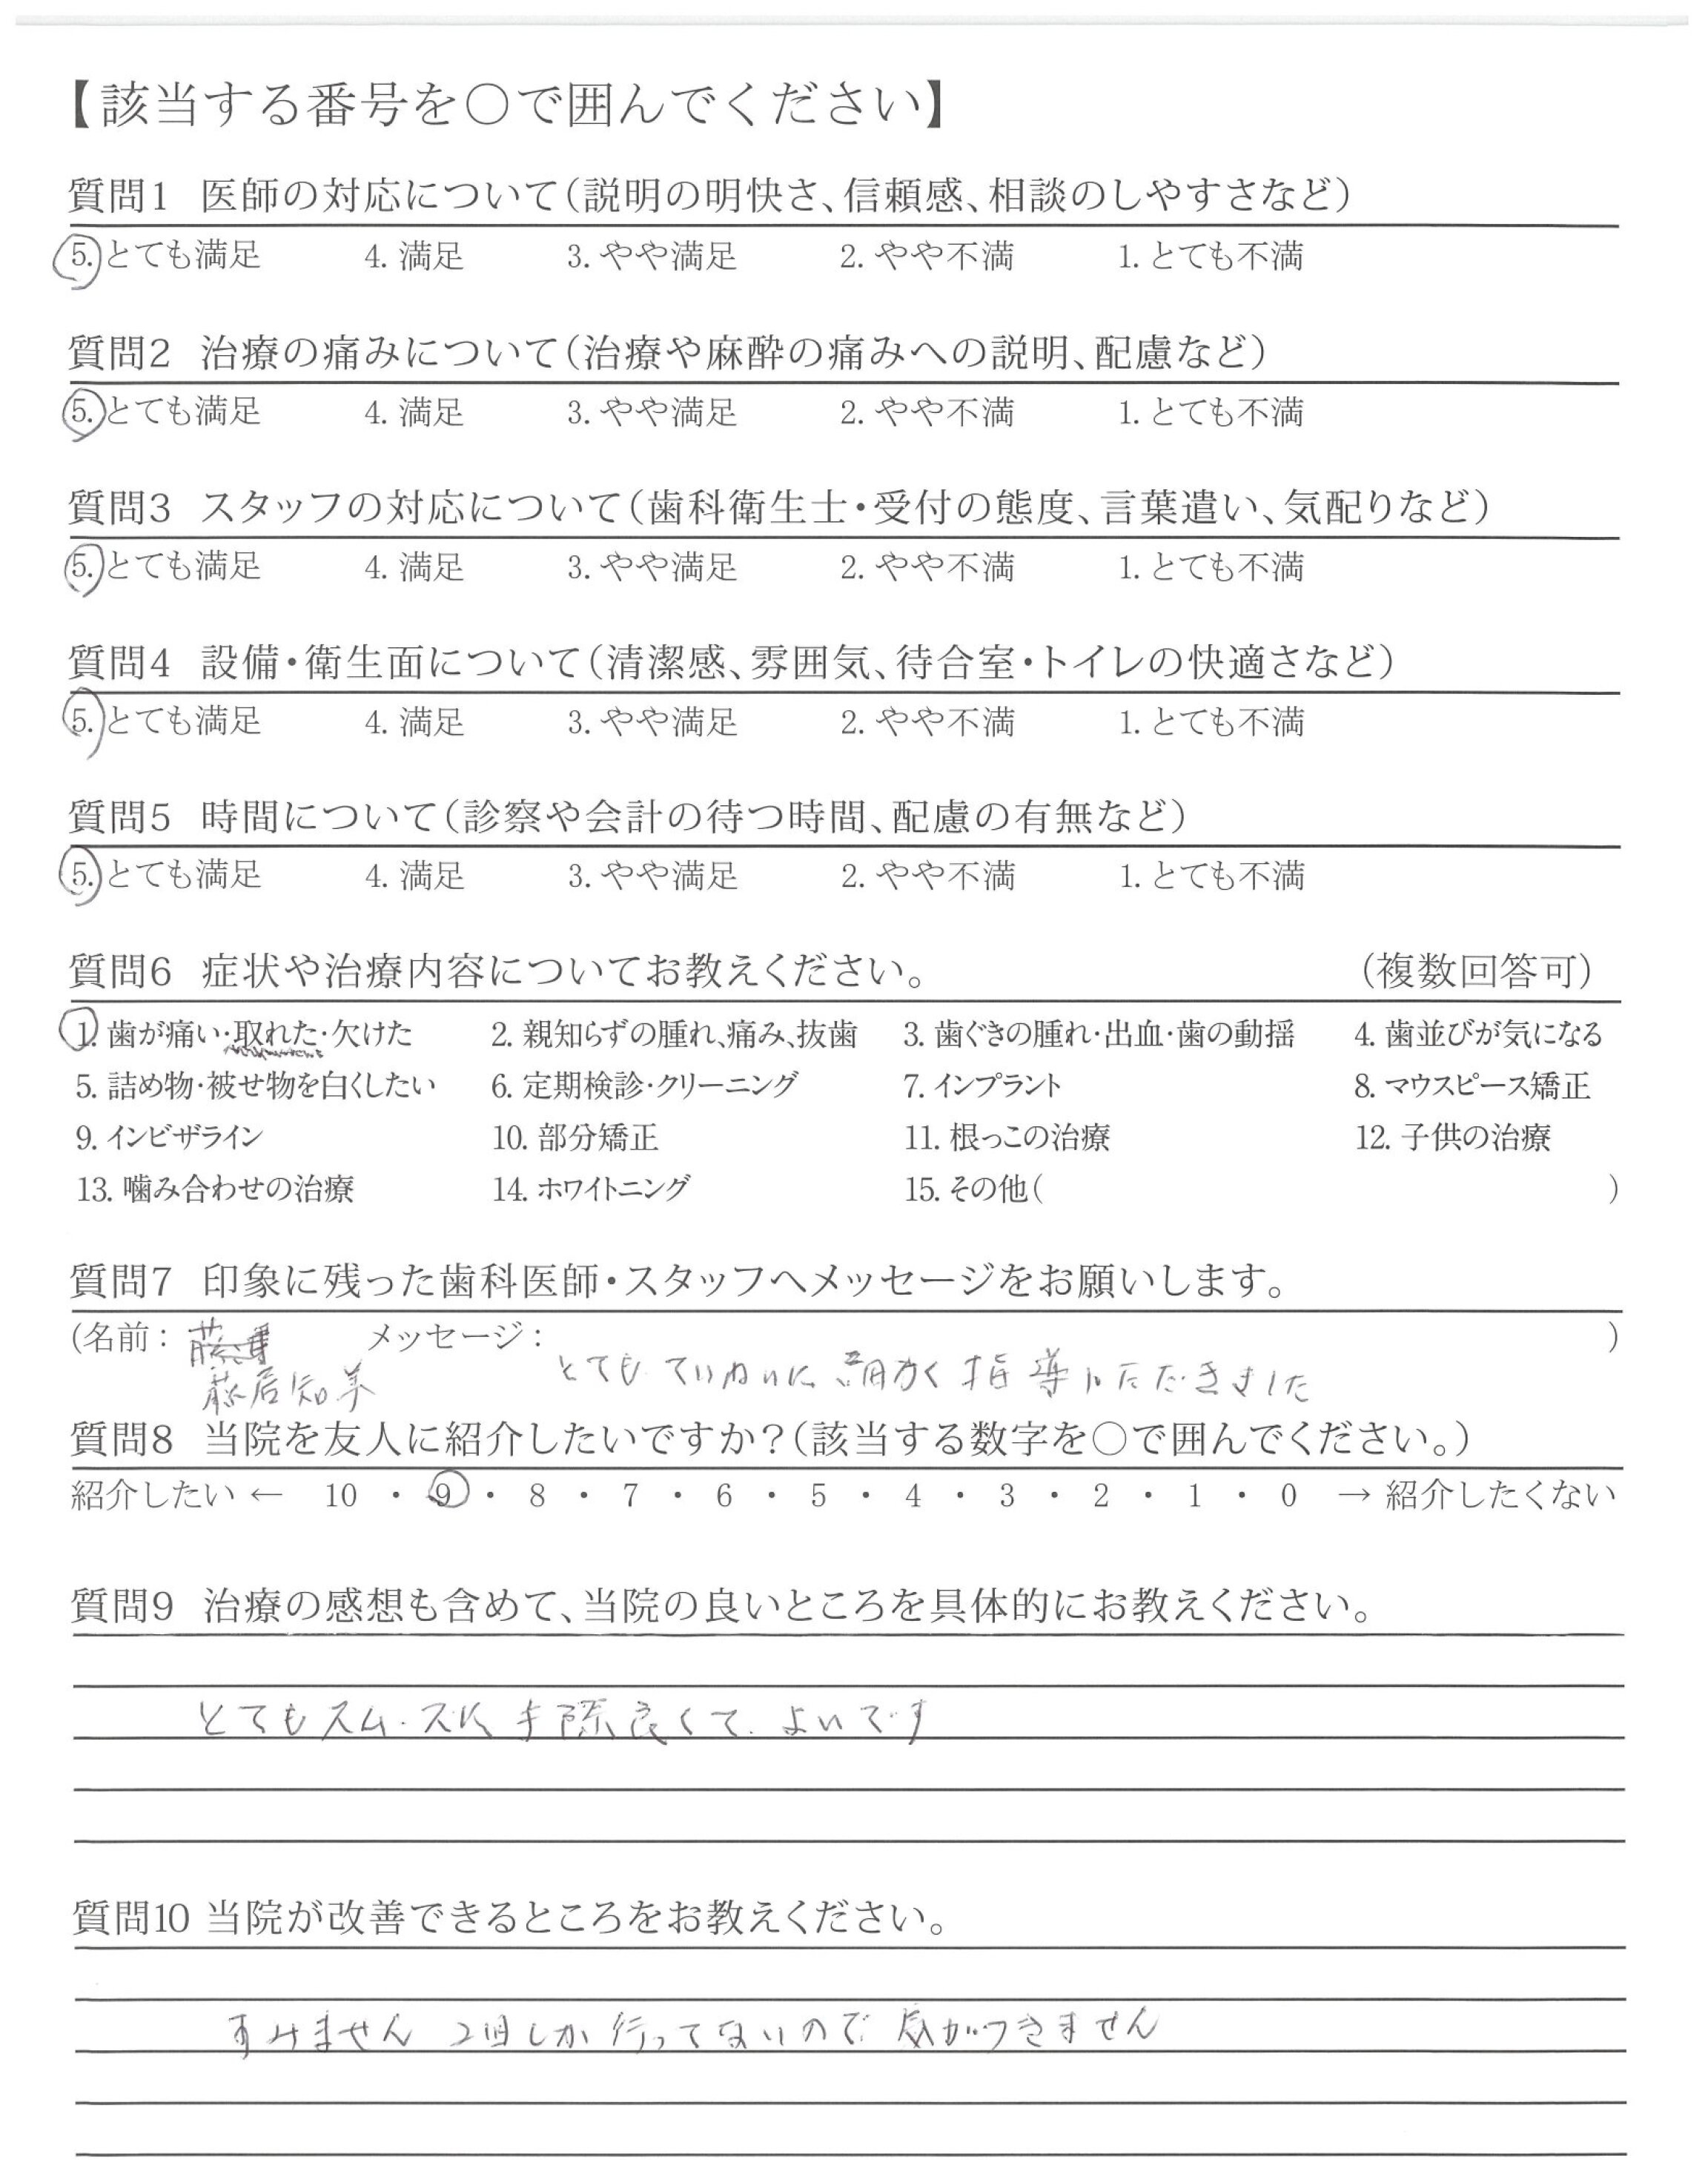 【該当する番号を○で囲んでください】
質問1 医師の対応について(説明の明快さ、信頼感、相談のしやすさなど)
5. とても満足 4. 満足 3. やや満足 2. やや不満 1. とても不満
質問2 治療の痛みについて(治療や麻酔の痛みへの説明、配慮など)
5. とても満足 4. 満足 3. やや満足 2. やや不満 1. とても不満
質問3 スタッフの対応について(歯科衛生士・受付の態度、言葉遣い、気配りなど)
5. とても満足 4. 満足 3. やや満足 2. やや不満 1. とても不満
質問4 設備・衛生面について(清潔感、雰囲気、待合室・トイレの快適さなど)
5. とても満足 4. 満足 3. やや満足 2. やや不満 1. とても不満
質問5 時間について(診察や会計の待つ時間、配慮の有無など)
5. とても満足 4. 満足 3. やや満足 2. やや不満 1. とても不満
質問6 症状や治療内容についてお教えください。 (複数回答可)
1. 歯が痛い・取れた・欠けた 2. 親知らずの腫れ、痛み、抜歯 3. 歯ぐきの腫れ・出血・歯の動揺 4. 歯並びが気になる
5. 詰め物・被せ物を白くしたい 6. 定期検診・クリーニング 7. インプラント 8. マウスピース矯正
9. インビザライン 10. 部分矯正 11. 根っこの治療 12. 子供の治療
13. 噛み合わせの治療 14. ホワイトニング 15. その他( )
質問7 印象に残った歯科医師・スタッフへメッセージをお願いします。
(名前: メッセージ: )
藤居知美 とても ていねいに 細かく 指導いただきました
質問8 当院を友人に紹介したいですか?(該当する数字を○で囲んでください。)
紹介したい ← 10 ・ 9 ・ 8 ・ 7 ・ 6 ・ 5 ・ 4 ・ 3 ・ 2 ・ 1 ・ 0 → 紹介したくない
質問9 治療の感想も含めて、当院の良いところを具体的にお教えください。
とてもスムーズに 手際良くて よいです
質問10 当院が改善できるところをお教えください。
すみません 2回しか 行ってないので 気がつきません